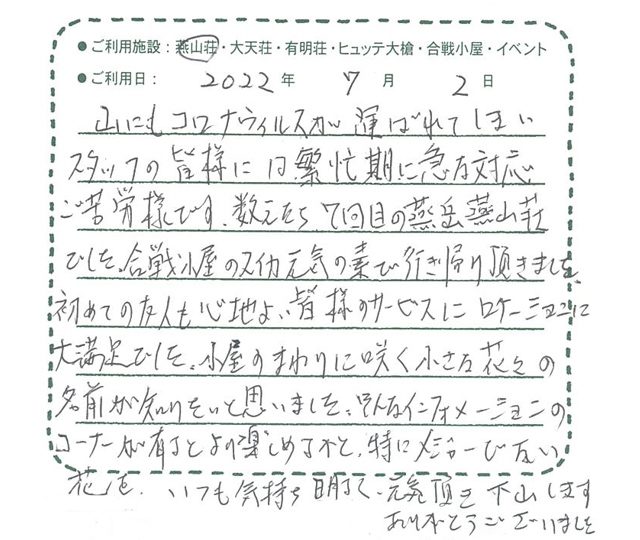 ●ご利用施設：燕山荘・大天荘・有明荘・ヒュッテ大槍・合戦小屋・イベント
●ご利用日： 2022 年 7 月 2 日
山にもコロナウィルスが運ばれてしまい
スタッフの皆様には繁忙期に急な対応
ご苦労様です。数えたら7回目の燕岳燕山荘
でした。合戦小屋のスイカ元気の素で行き帰り頂きました。
初めての友人も心地よい皆様のサービスに ロケーションに
大満足でした。小屋のまわりに咲く小さな花々の
名前が知りたいと思いました。そんなインフォメーションの
コーナーが有るとより楽しめるかと、特にメジャーでない
花を。いつも気持ち明るく、元気頂き下山します
ありがとうございました